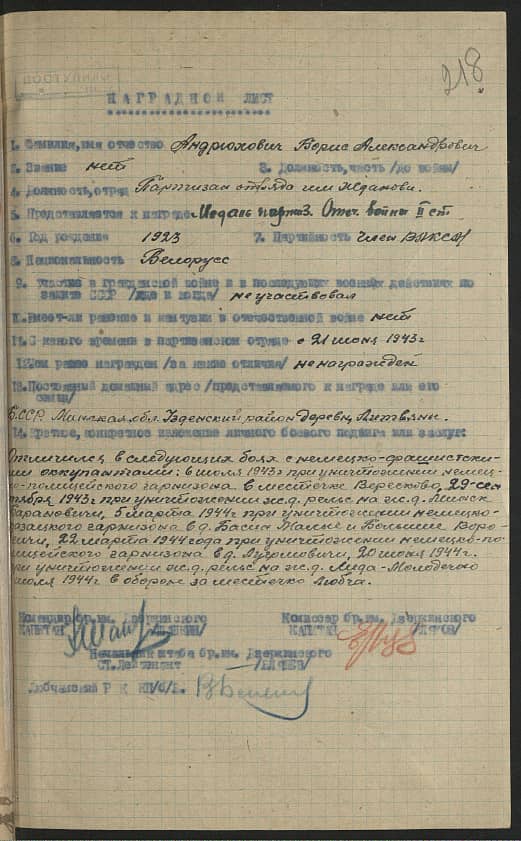 ПОСТУПИЛИ
218
НАГРАДНОЙ ЛИСТ
1. Фамилия, имя отчество Андрюхович Борис Александрович
2. Звание нет 3. Должность, часть /до войны/
4. Должность, отряд Партизан отряда им Жданова.
5. Представляется к награде Медаль партиз. Отеч. войны II ст
6. Год рождения 1923 7. Партийность Член ВЛКСМ
8. Национальность Белорусс
9. участие в гражданской войне и в последующих военных действиях по
защите СССР /где и когда/ не участвовал
Имеет-ли ранение и контузии в отечественной войне нет
11. С какого времени в партизанском отряде с 21 июня 1943г
12. Чем ранее награжден /за какие отличия/ не награжден
13. Постоянный домашний адрес /представляемого к награде или его
семьи/
БССР. Минская обл. Узденский район деревн. Литвяны.
14. Краткое, конкретное изложение личного боевого подвига или заслуг:
Отличился в следующих боях с немецко-фашистски-
ми оккупантами: в июля 1943г при уничтожении немец-
ко-полицейского гарнизона в местечке Вересково, 29-сен
тября 1943г при уничтожении ж.д. рельс на ж.д. Минск
Барановичи, 5 марта 1944г при уничтожении немецко-
казацкого гарнизона в д. Басин Малые и Большие Воро-
вичи, 22 марта 1944 года при уничтожении немецко-по-
лицейского гарнизона в д. 20 июня 1944г.
при уничтожении ж.д. рельс на ж.д. Лида-Молодечно
июля 1944г. в обороне за местечко Любча.
Командир бр. им. Дзержинского Комиссар бр. им. Дзержинского
КАПИТАН /ШАШКИН/ КАПИТАН
Начальник штаба бр. им. Дзержинского
СТ. Лейтенант
Любчанский Р К КП/б/Б.